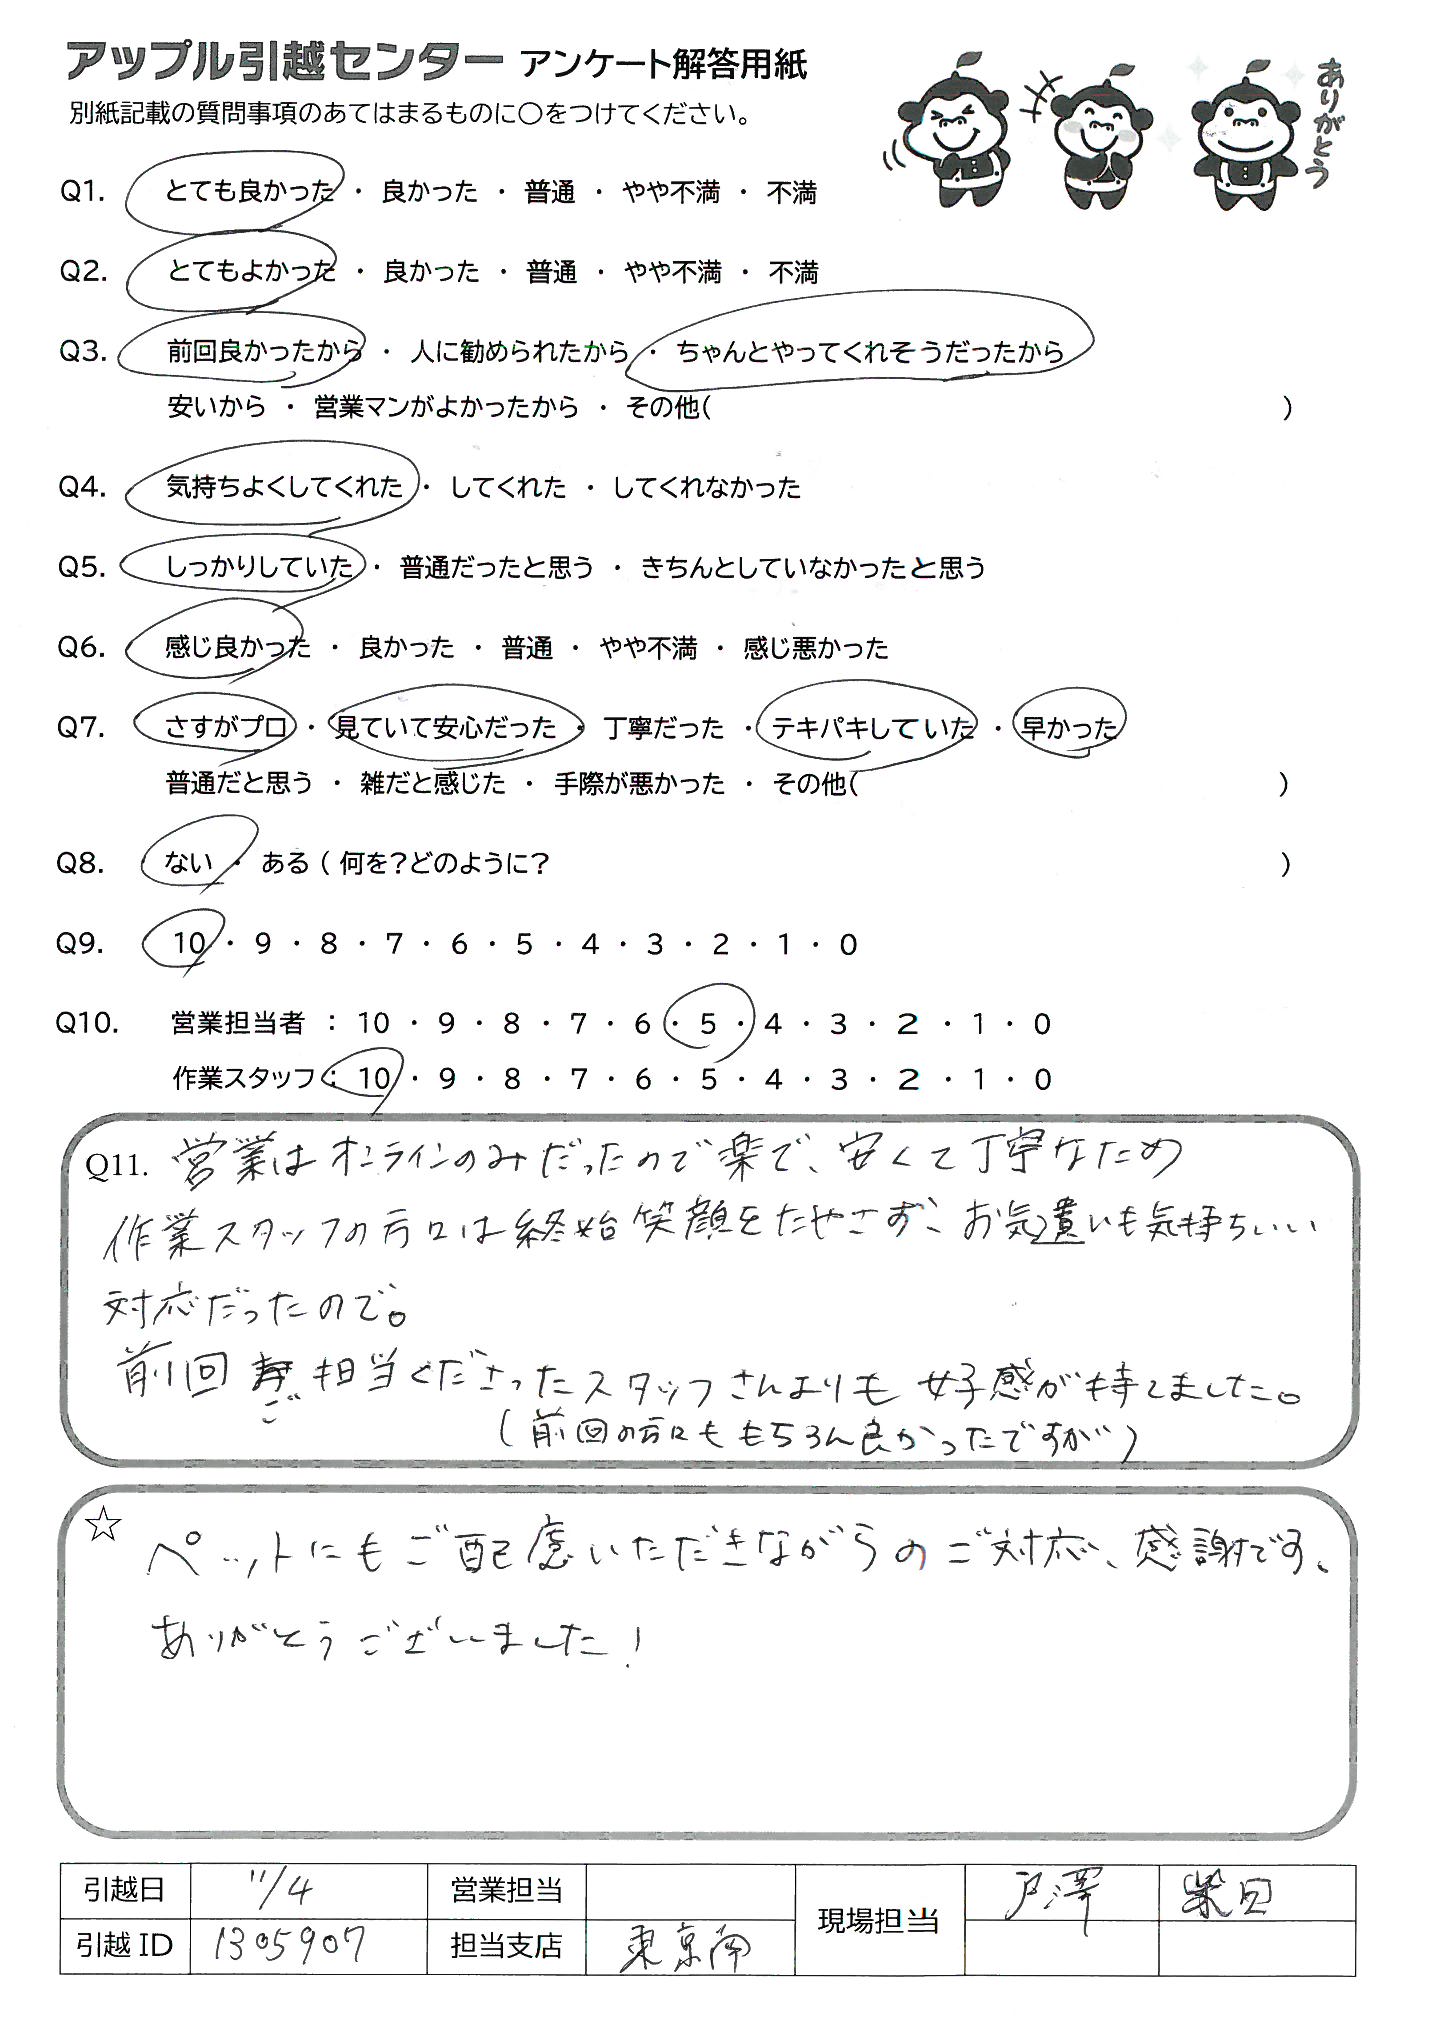 アップル引越センター アンケート解答用紙
別紙記載の質問事項のあてはまるものに○をつけてください。
ありがとう
Q1. とても良かった ・ 良かった ・ 普通 ・ やや不満 ・ 不満
Q2. とてもよかった ・ 良かった ・ 普通 ・ やや不満 ・ 不満
Q3. 前回良かったから ・ 人に勧められたから ・ ちゃんとやってくれそうだったから
安いから ・ 営業マンがよかったから ・ その他( )
Q4. 気持ちよくしてくれた ・ してくれた ・ してくれなかった
Q5. しっかりしていた ・ 普通だったと思う ・ きちんとしていなかったと思う
Q6. 感じ良かった ・ 良かった ・ 普通 ・ やや不満 ・ 感じ悪かった
Q7. さすがプロ ・ 見ていて安心だった ・ 丁寧だった ・ テキパキしていた ・ 早かった
普通だと思う ・ 雑だと感じた ・ 手際が悪かった ・ その他( )
Q8. ない ・ ある ( 何を?どのように? )
Q9. 10 ・ 9 ・ 8 ・ 7 ・ 6 ・ 5 ・ 4 ・ 3 ・ 2 ・ 1 ・ 0
Q10. 営業担当者 : 10 ・ 9 ・ 8 ・ 7 ・ 6 ・ 5 ・ 4 ・ 3 ・ 2 ・ 1 ・ 0
作業スタッフ : 10 ・ 9 ・ 8 ・ 7 ・ 6 ・ 5 ・ 4 ・ 3 ・ 2 ・ 1 ・ 0
Q11. 営業はオンラインのみだったので楽で、安くて丁寧なため
作業スタッフの方々は終始笑顔をたやさず、お気遣いも気持ちいい
対応だったので。
前回ご担当くださったスタッフさんよりも好感が持てました。
(前回の方々ももちろん良かったですが)
☆ ペットにもご配慮いただきながらのご対応、感謝です、
ありがとうございました!
引越日 11/4 営業担当 現場担当 戸澤 柴田
引越ID 1305907 担当支店 東京南